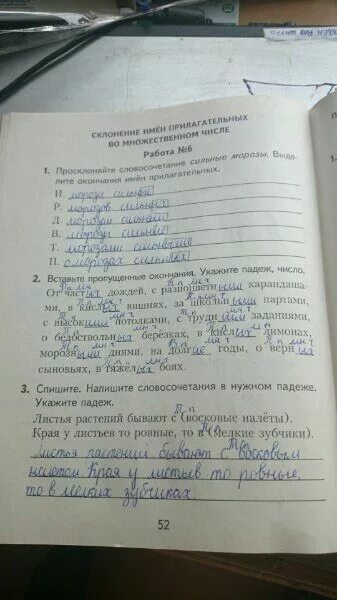 СКЛОНЕНИЕ ИМЁН ПРИЛАГАТЕЛЬНЫХ
ВО МНОЖЕСТВЕННОМ ЧИСЛЕ
Работа №6
1. Просклоняйте словосочетание сильные морозы. Выде-
лите окончания имён прилагательных.
И. морозы сильные
Р. морозов сильных
Д. морозам сильным
В. морозы сильные
Т. морозами сильными
П. о морозах сильных
2. Вставьте пропущенные окончания. Укажите падеж, число.
От частых дождей, с разноцветными карандаша-
ми, в кислых вишнях, за школьными партами,
с высокими потолками, с трудными заданиями,
о белоствольных берёзках, в кислых лимонах,
морозными днями, на долгие годы, о верных
сыновьях, в тяжёлых боях.
3. Спишите. Напишите словосочетания в нужном падеже.
Укажите падеж.
Тп
Листья растений бывают с (восковые налёты).
Пп
Края у листьев то ровные, то в (мелкие зубчики).
Листья растений бывают с восковым
налётом Края у листьев то ровные,
то в мелких зубчиках
52